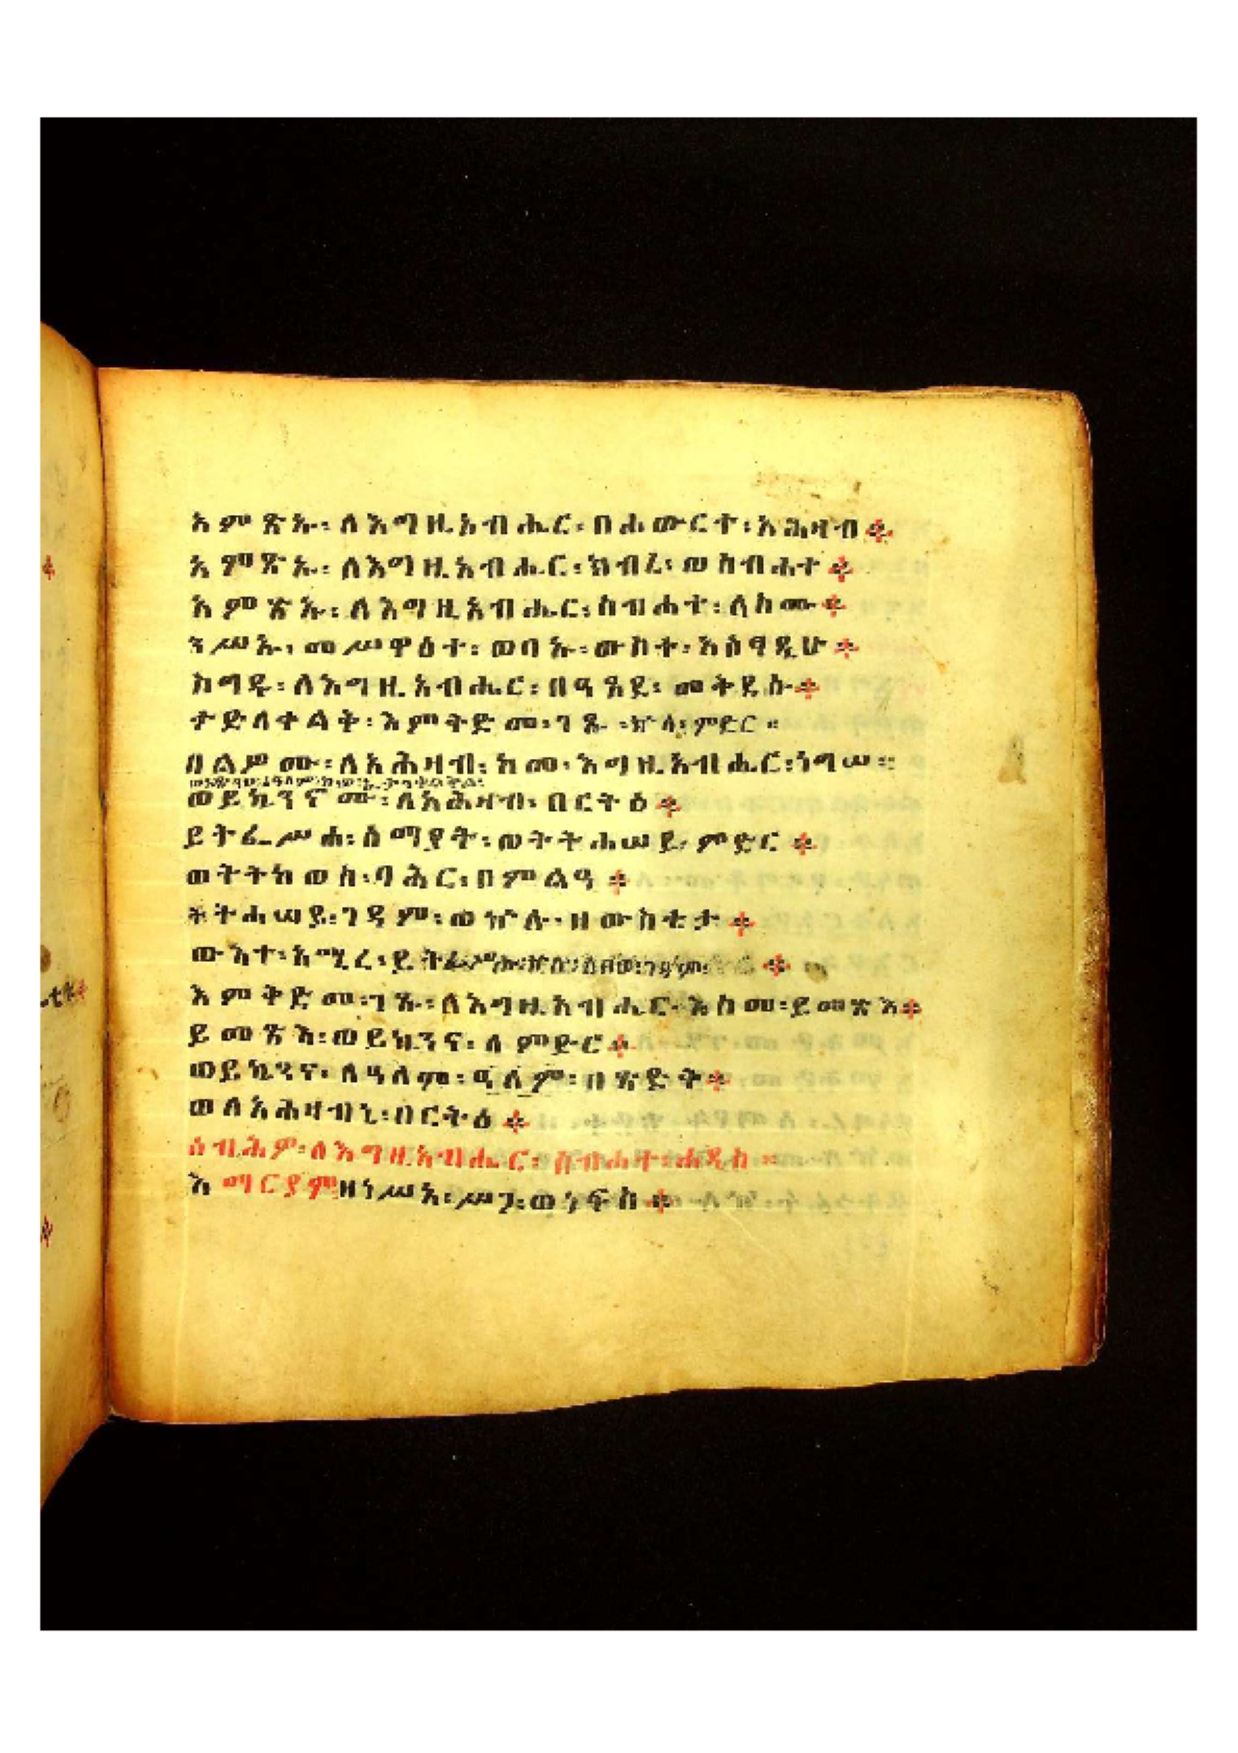 አምጽኡ፡ ለእግዚአብሔር፡ በሐውርተ፡ አሕዛብ።
አምጽኡ፡ ለእግዚአብሔር፡ ክብረ፡ ወስብሐተ።
አምጽኡ፡ ለእግዚአብሔር፡ ስብሐተ፡ ለስሙ።
ንሥኡ፡ መሥዋዕተ፡ ወባኡ፡ ውስተ፡ አዕፃዲሁ።
ስግዱ፡ ለእግዚአብሔር፡ በዓፀደ፡ መቅደሱ።
ታድለቀልቅ፡ እምቅድመ፡ ገጹ፡ ኵላ፡ ምድር።
በልዎሙ፡ ለአሕዛብ፡ ከመ፡ እግዚአብሔር፡ ነግሠ።
ወይኴንኖሙ፡ ለአሕዛብ፡ በርትዕ።
ይትፌሥሐ፡ ሰማያት፡ ወትትሐሠይ፡ ምድር።
ወትትከወስ፡ ባሕር፡ በምልዓ።
ትትሐሠይ፡ ገዳም፡ ወኵሉ፡ ዘውስቴታ።
ውእተ፡ አሚረ፡ ይትፌሥሑ፡ ኵሉ፡ ዕፀወ፡ ገዳም፡
እምቅድመ፡ ገጹ፡ ለእግዚአብሔር፡ እስመ፡ ይመጽእ።
ይመጽእ፡ ወይኴንና፡ ለምድር።
ወይኴንና፡ ለዓለም፡ ዓለም፡ በጽድቅ።
ወለአሕዛብኒ፡ በርትዕ።
ሰብሕዎ፡ ለእግዚአብሔር፡ ስብሐተ፡ ሐዲስ።
እማርያም ዘነሥአ፡ ሥጋ፡ ወነፍስ።